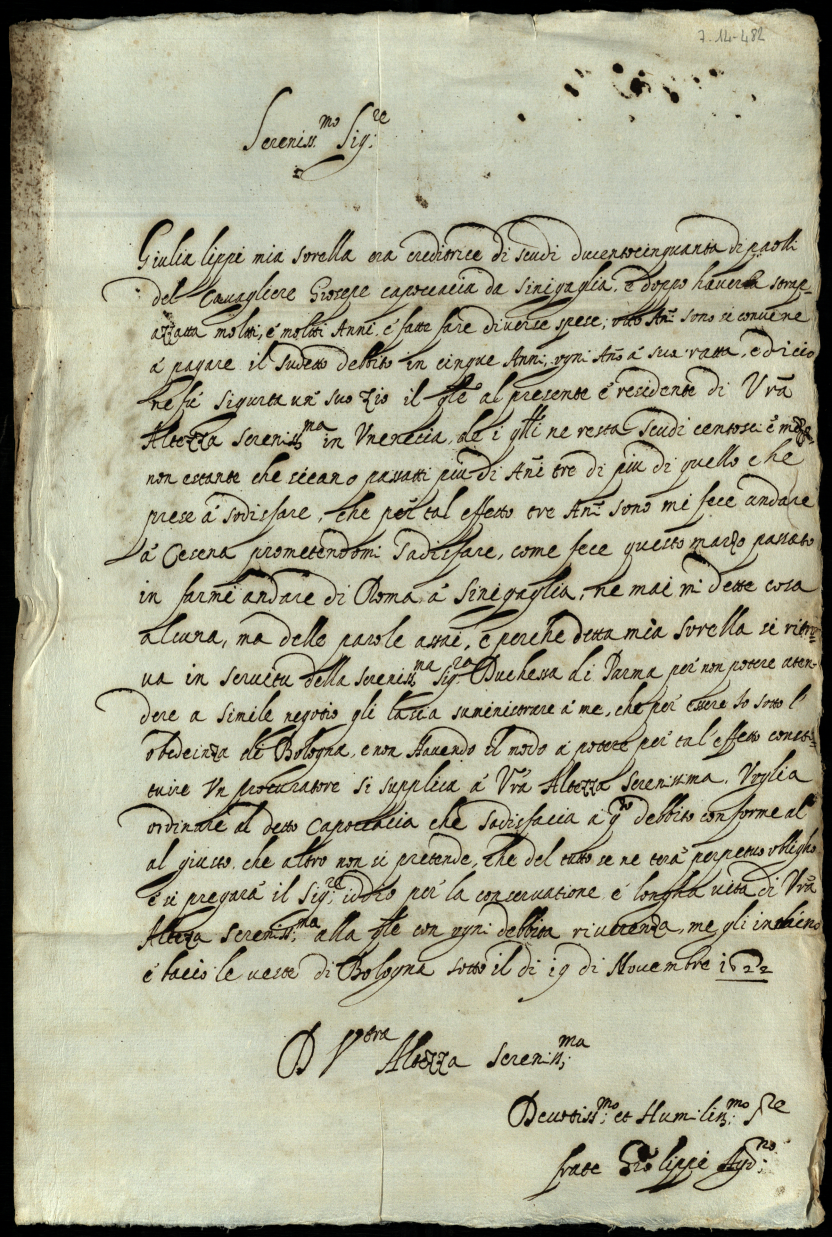 7-14-482
Sereniss.mo Sig.re
Giulia lippi mia sorella era creditrice di scudi ducentocinquanta di paolli
del Cavagliere Giosepe capoccacia da Sinigaglia, e doppo haverla strap-
azzatta moltti, é moltti Anni, é fatte fare diverse spese, otto Ani sono si convene
á pagare il sudetto debbito in cingue Anni, ogni Año á sua ratta, e di cio
ne fú sigurta un suo Zio il qle al presente é residente di Vrã
Altezza Sereniss.ma in Venecia, de i qlli ne resta Scudi centosei é mezo
non estante che sieano passatti piu di Ani tre di piu di quello che
prese á sodisfare, che per tal effetto tre Ani sono mi fece andare
á Cesena prometendomi sadisfare, come fece questo marzo passato
in farmi andare di Roma á Sinigaglia, ne mai mi dette cosa
alcuna, ma delle parole assai, e perche detta mia sorella si ritro-
va in servitu della Sereniss.ma Sig.ra Duchessa di Parma per non potere aten-
dere a simile negotio gli lascia suministrare á me, che per essere Io sotto l'
obedeinza di Bologna, e non havendo il modo á potere per tal effetto consti-
tuire Un procuratore si supplica á Vrã Altezza Serenissima, Voglia
ordinare al detto Capoccacia che sadisfacia á qto debbito conforme al
al giusto, che altro non si pretende, che del tutto se ne terá perpetuo obligho
é si pregará il Sig.re iddio per la conservatione é longha vita di Vrã
Alteza Sereniss.ma alla qle con ogni debbita riverenza, me gli inchino
é bacio le veste di Bologna sotto il di 19 di Novembre 1622
D Vostra Altezza Sereniss.ma
Devotiss.mo et Humiliss.mo S.re
frate Gio lippi